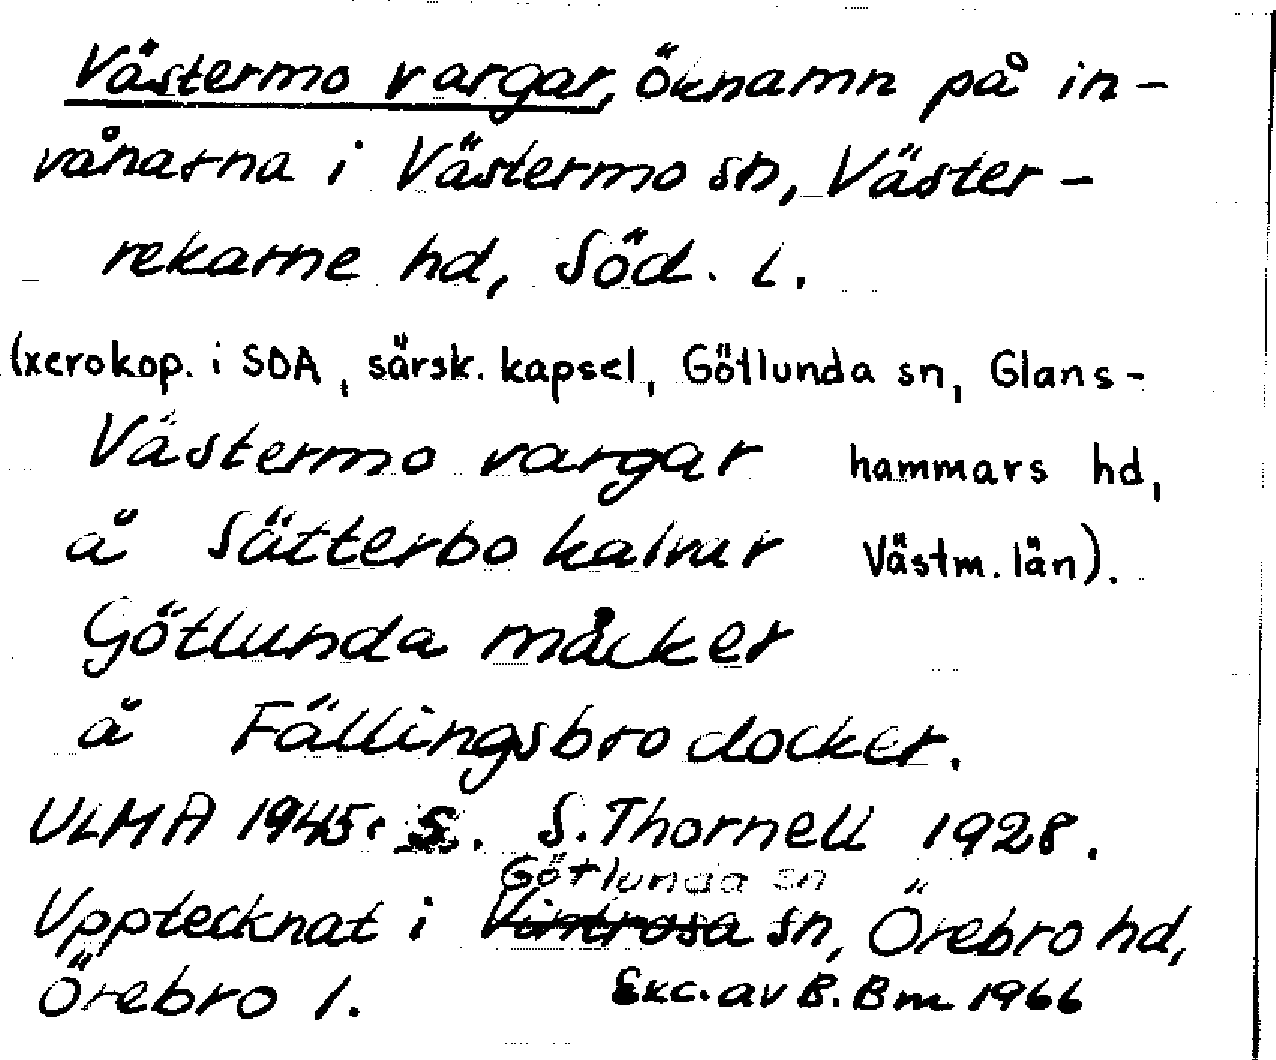 Västermo vargar, öknamn på in-
vånarna i Västermo sn, Väster-
rekarne hd, Söd. l.
(xerokop. i SOA, särsk. kapsel, Götlunda sn, Glans-
hammars hd,
Västm. län).
Västermo vargar
å Sätterbo kalvar
Götlunda måcker
å Fällingsbro docker.
ULMA 1945: 5. S. Thornell 1928.
Götlunda sn
Upptecknat i Vintrosa sn, Örebro hd,
Örebro l.
Exc. av B. Bm 1966